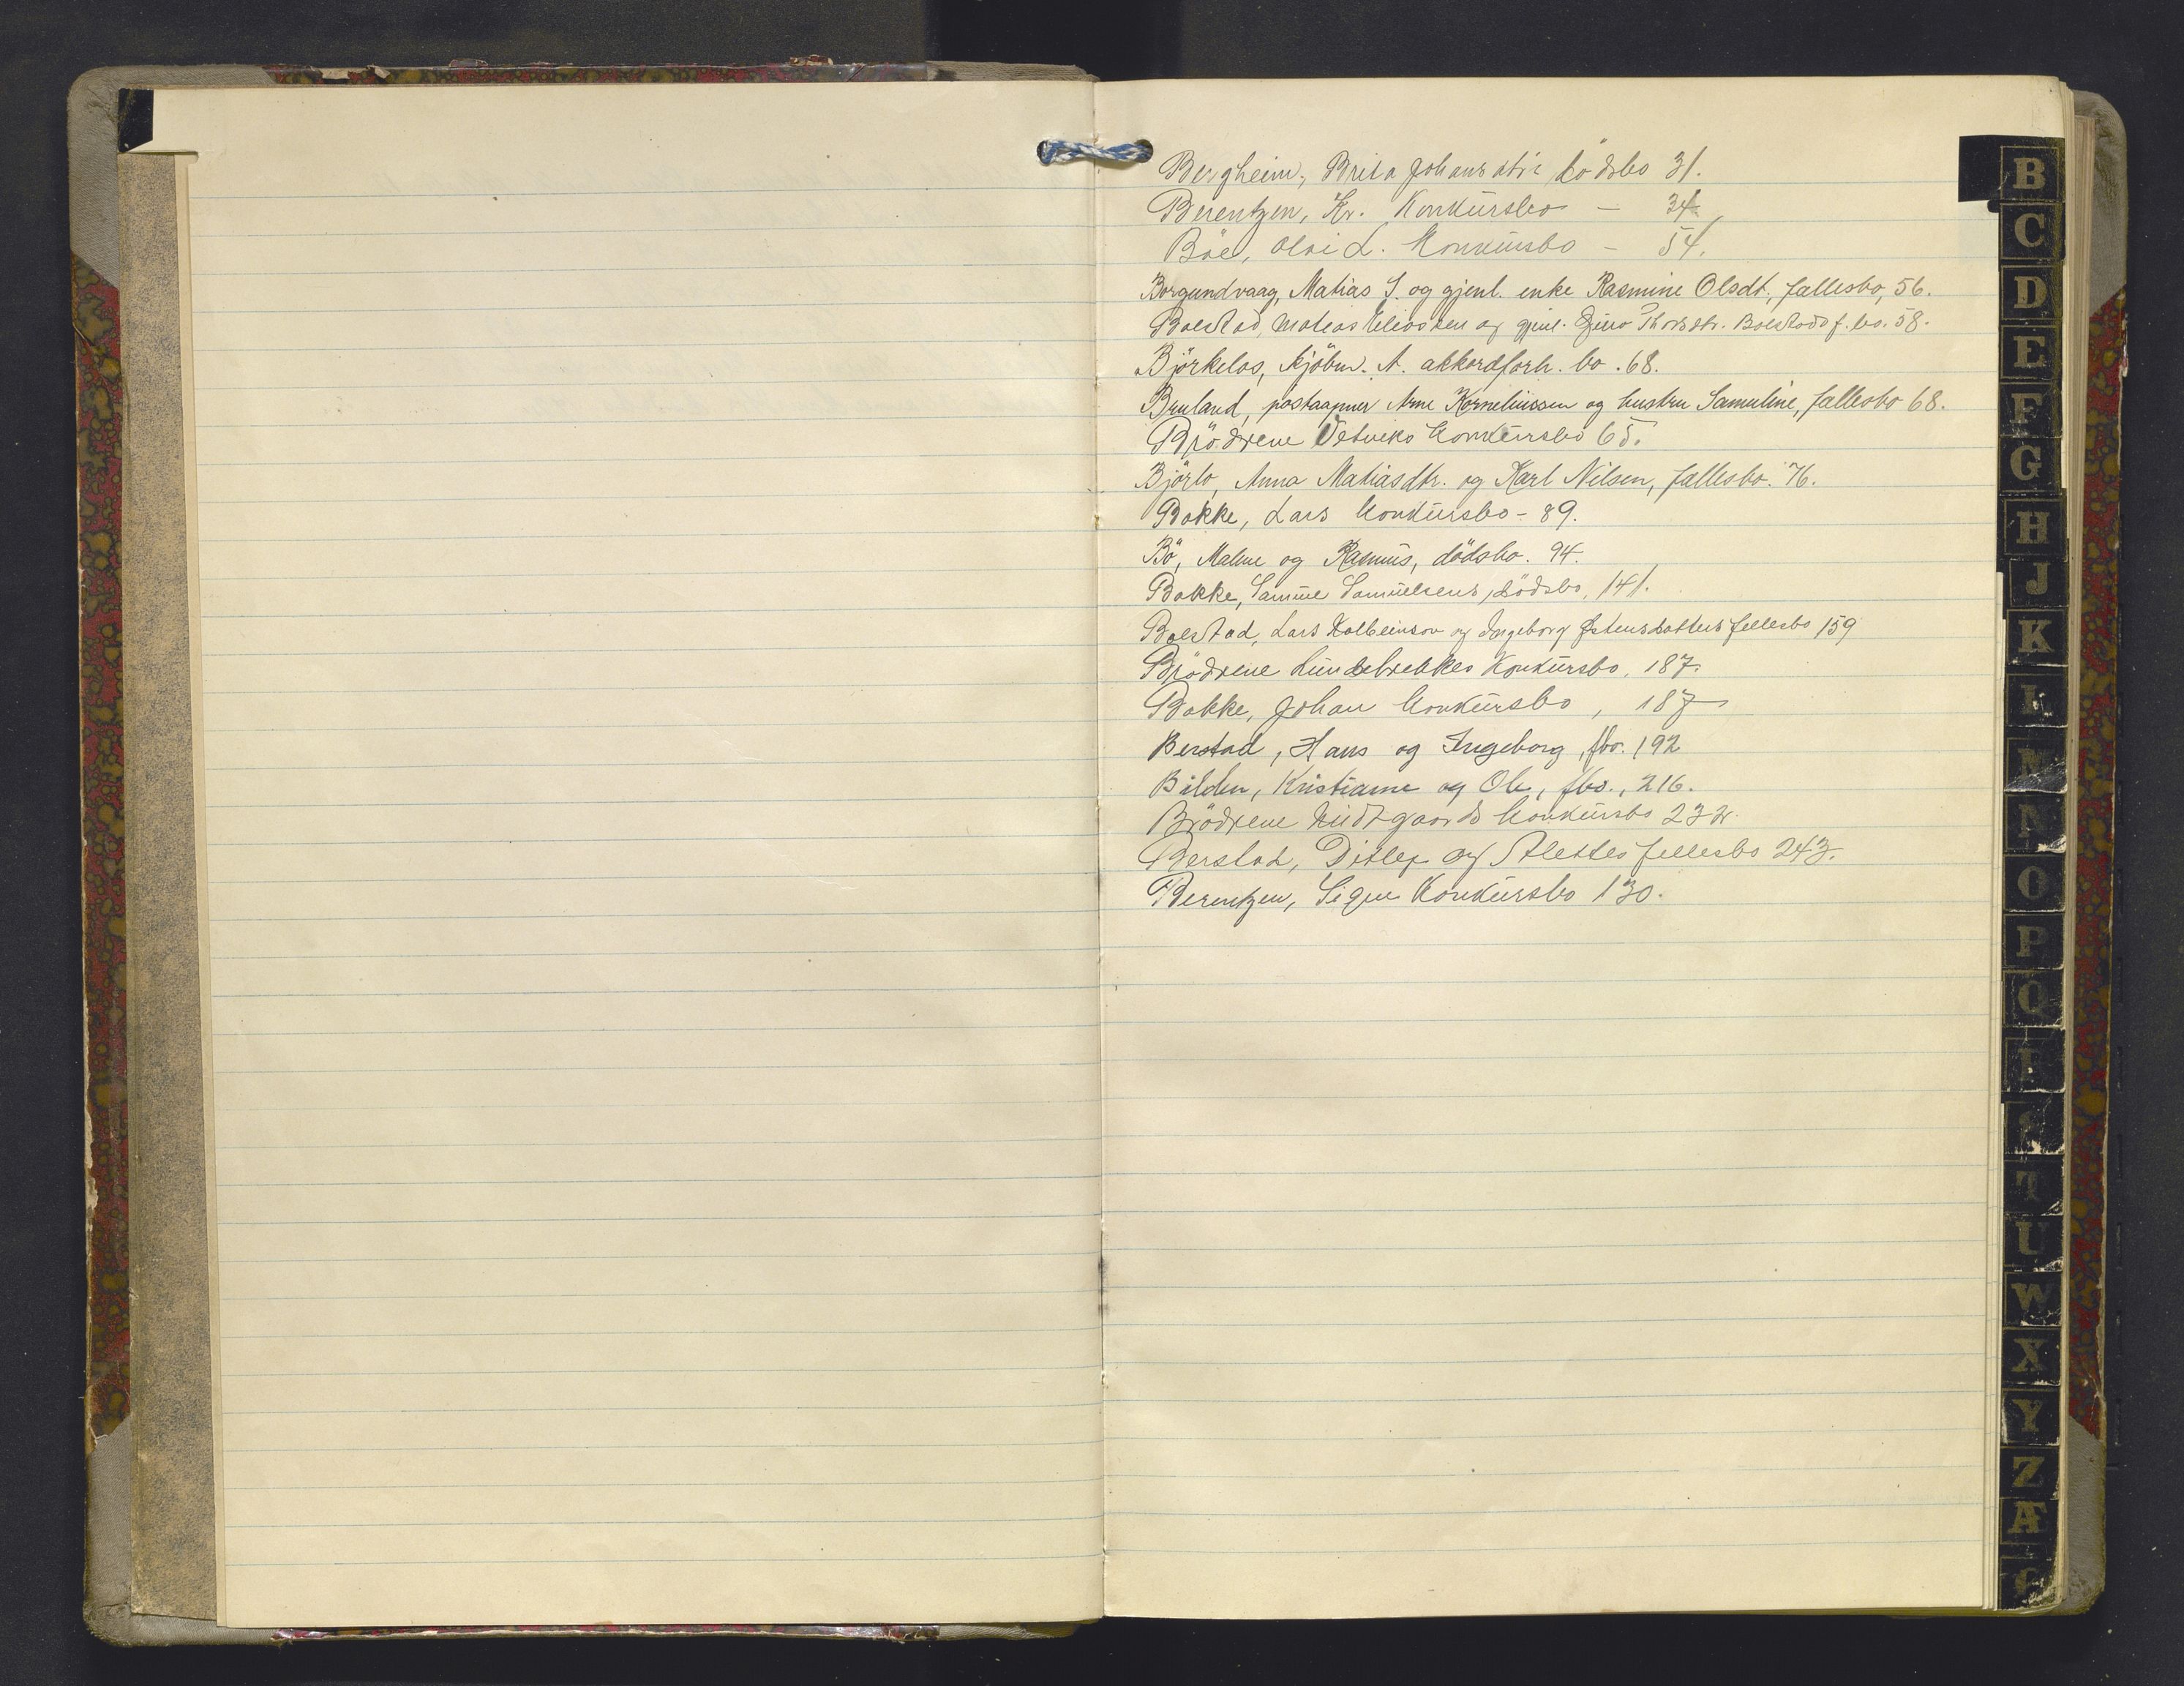 Bergheim, Brita Johansdtr dödsbo 31.
Berentzen, Kr. Konkursbo - 34
Böe, Olai L. Konkursbo - 54.
Borgundvaag, Matias S. og gjenl. enke Rasmine Olsdt., fællesbo, 56.
Bolstad, Matias Eliassen og gjenl. Thorsdtr. Bolstads f. bo. 58.
Björkelos, kjöbm. A. akkordforh. bo. 68.
Bruland, postaapner Arne Korneliussen og hustru Samuline, fællesbo 68.
Brödrene Vetviks konkursbo 65.
Björlo, Anna Matiasdtr. og Karl Nilsen, fællesbo. 76.
Bakke, Lars konkursbo - 89.
Bö, Malene og Rasmus, dödsbo. 94.
Bakke, Samuel Samuelsens dödsbo, 141.
Bolstad, Lars Kolbeinson og Ingeborg Østensdatters fellesbo 159
Brödrene Lundebrekkes Konkursbo, 187.
Bakke, Johan konkursbo, 187
Berstad, Hans og Ingeborg, fbo. 192
Bilden, Kristianne og Ole, fbo., 216.
Brödrene Midtgaards konkursbo 232.
Berstad, Ditlef og Alettes fellesbo 243.
Berentzen, Signe Konkursbo 130.
B
C
D
E
F
G
H
J
K
L
M
N
O
P
Q
R
S
T
U
W
X
Y
Z
Æ